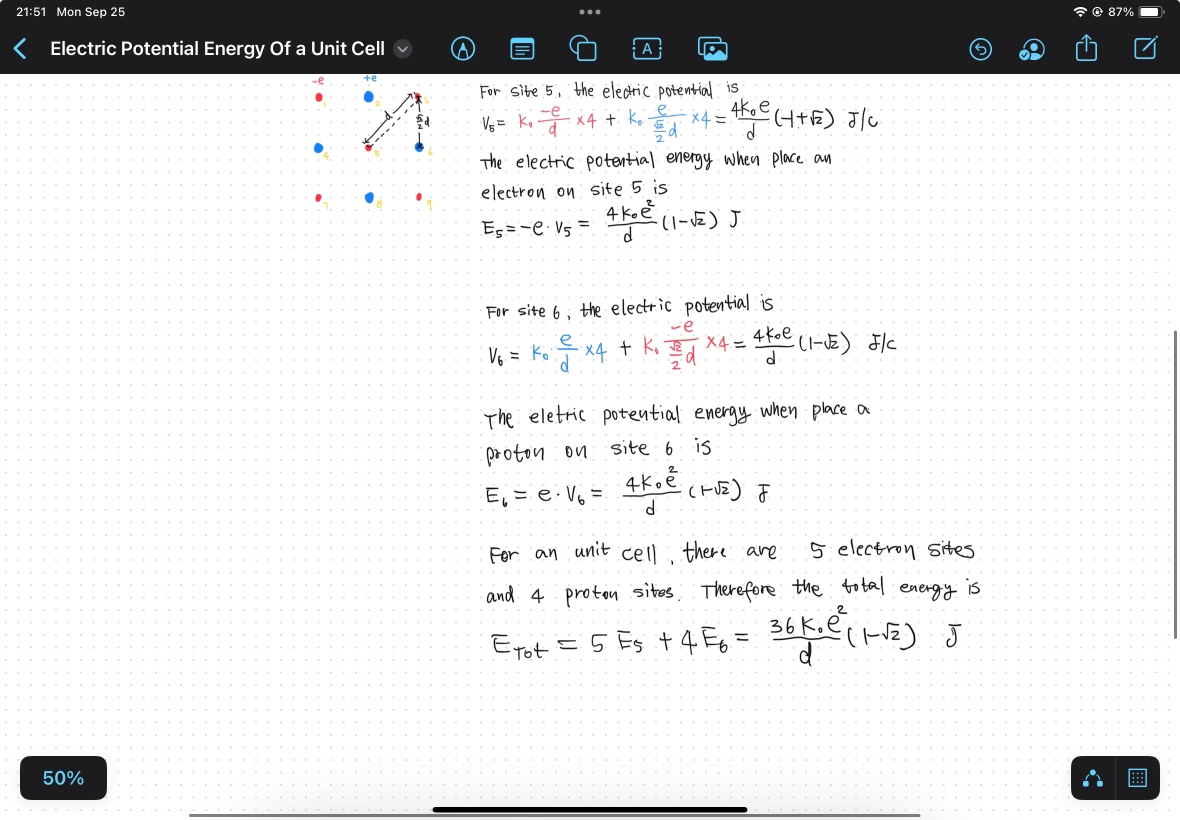 21:51 Mon Sep 25
87%
Electric Potential Energy Of a Unit Cell
-e +e
1 2 3
d √2/2 d
4 5 6
7 8 9
For site 5, the electric potential is
V₅ = K₀ -e/d ×4 + K₀ e/(√2/2 d) ×4 = 4K₀e/d (-1+√2) J/C
The electric potential energy when place an
electron on site 5 is
E₅ = -e · V₅ = 4K₀e²/d (1-√2) J
For site 6, the electric potential is
V₆ = K₀ e/d ×4 + K₀ -e/(√2/2 d) ×4 = 4K₀e/d (1-√2) J/C
The eletric potential energy when place a
proton on site 6 is
E₆ = e · V₆ = 4K₀e²/d (1-√2) J
For an unit cell, there are 5 electron sites
and 4 proton sites. Therefore the total energy is
E Tot = 5 E₅ + 4 E₆ = 36 K₀e²/d (1-√2) J
50%